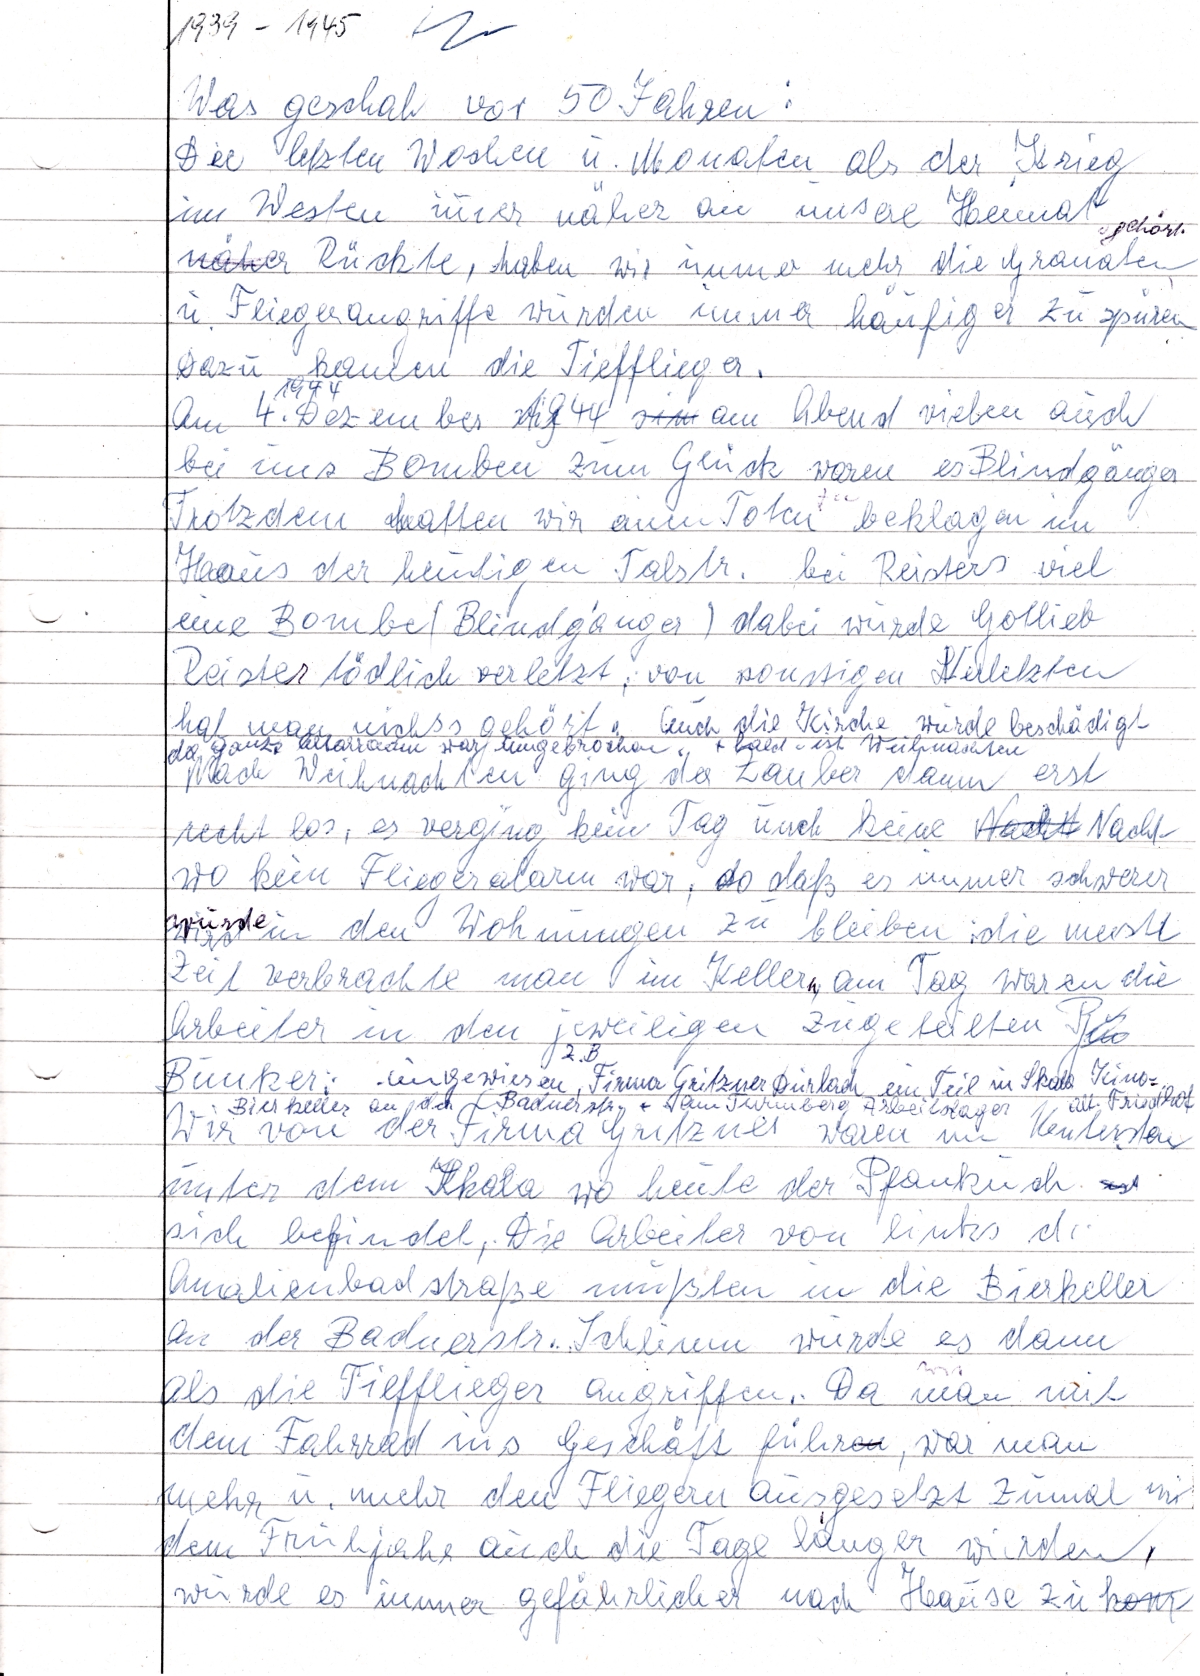 1939 - 1945
Was geschah vor 50 Jahren:
Die letzten Wochen u. Monaten als der Krieg
im Westen imer näher an unsere Heimat
gehört.
näher Rückte, haben wir immer mehr die Granaten
u. Fliegerangriffe wurden immer häufiger zu spüren
Dazu kamen die Tiefflieger.
1944
Am 4. Dezember 1944 am Abend vielen auch
bei uns Bomben zum Glück waren es Blindgänger
zu
Trotzdem hatten wir einen Toten beklagen im
Haaus der heutigen Talstr. bei Reisters viel
eine Bombe (Blindgänger) dabei wurde Gottlieb
Reister tödlich verletzt, von sonstigen Verletzten
hat man nichts gehört. Auch die Kirche wurde beschädigt
der ganze Altarraum war eingebrochen + bald ist Weihnachten
Nach Weihnachten ging der Zauber dann erst
recht los, es verging kein Tag und keine Nacht Nacht
wo kein Fliegeralarm war, so daß es immer schwerer
wurde
wird in den Wohnungen zu bleiben die meiste
Zeit verbrachte man im Kellern, am Tag waren die
Arbeiter in den jeweiligen zugeteilten
z.B
Bunker: eingewiesen, Firma Gritzner Durlach ein Teil in Skala Kino=
Bierkeller an der Badnerstr. + am Turmberg Arbeitslager alt. Friedhof
Wir von der Firma Gritzner waren im
unter dem Skala wo heute der Pfankuch
sich befindet, Die Arbeiter von links d.
Amalienbadstraße mußten in die Bierkeller
an der Badnerstr. Schlimm wurde es dann
als die Tiefflieger angriffen. Da man mit
wir
dem Fahrrad ins Geschäft fuhren, war man
mehr u. mehr den Fliegern ausgesetzt zumal mit
dem Frühjahr auch die Tage länger wurden,
wurde es immer gefährlicher nach Hause zu kom